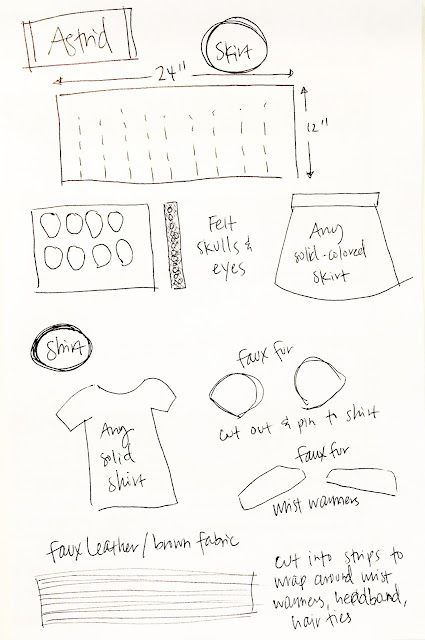 Astrid
Skirt
24"
12"
Felt
skulls &
eyes
Any
solid-colored
skirt
Shirt
faux fur
Any
solid
shirt
cut out & pin to shirt
faux fur
wrist warmers
faux leather/brown fabric
cut into strips to
wrap around wrist
warmers, headband,
hair ties